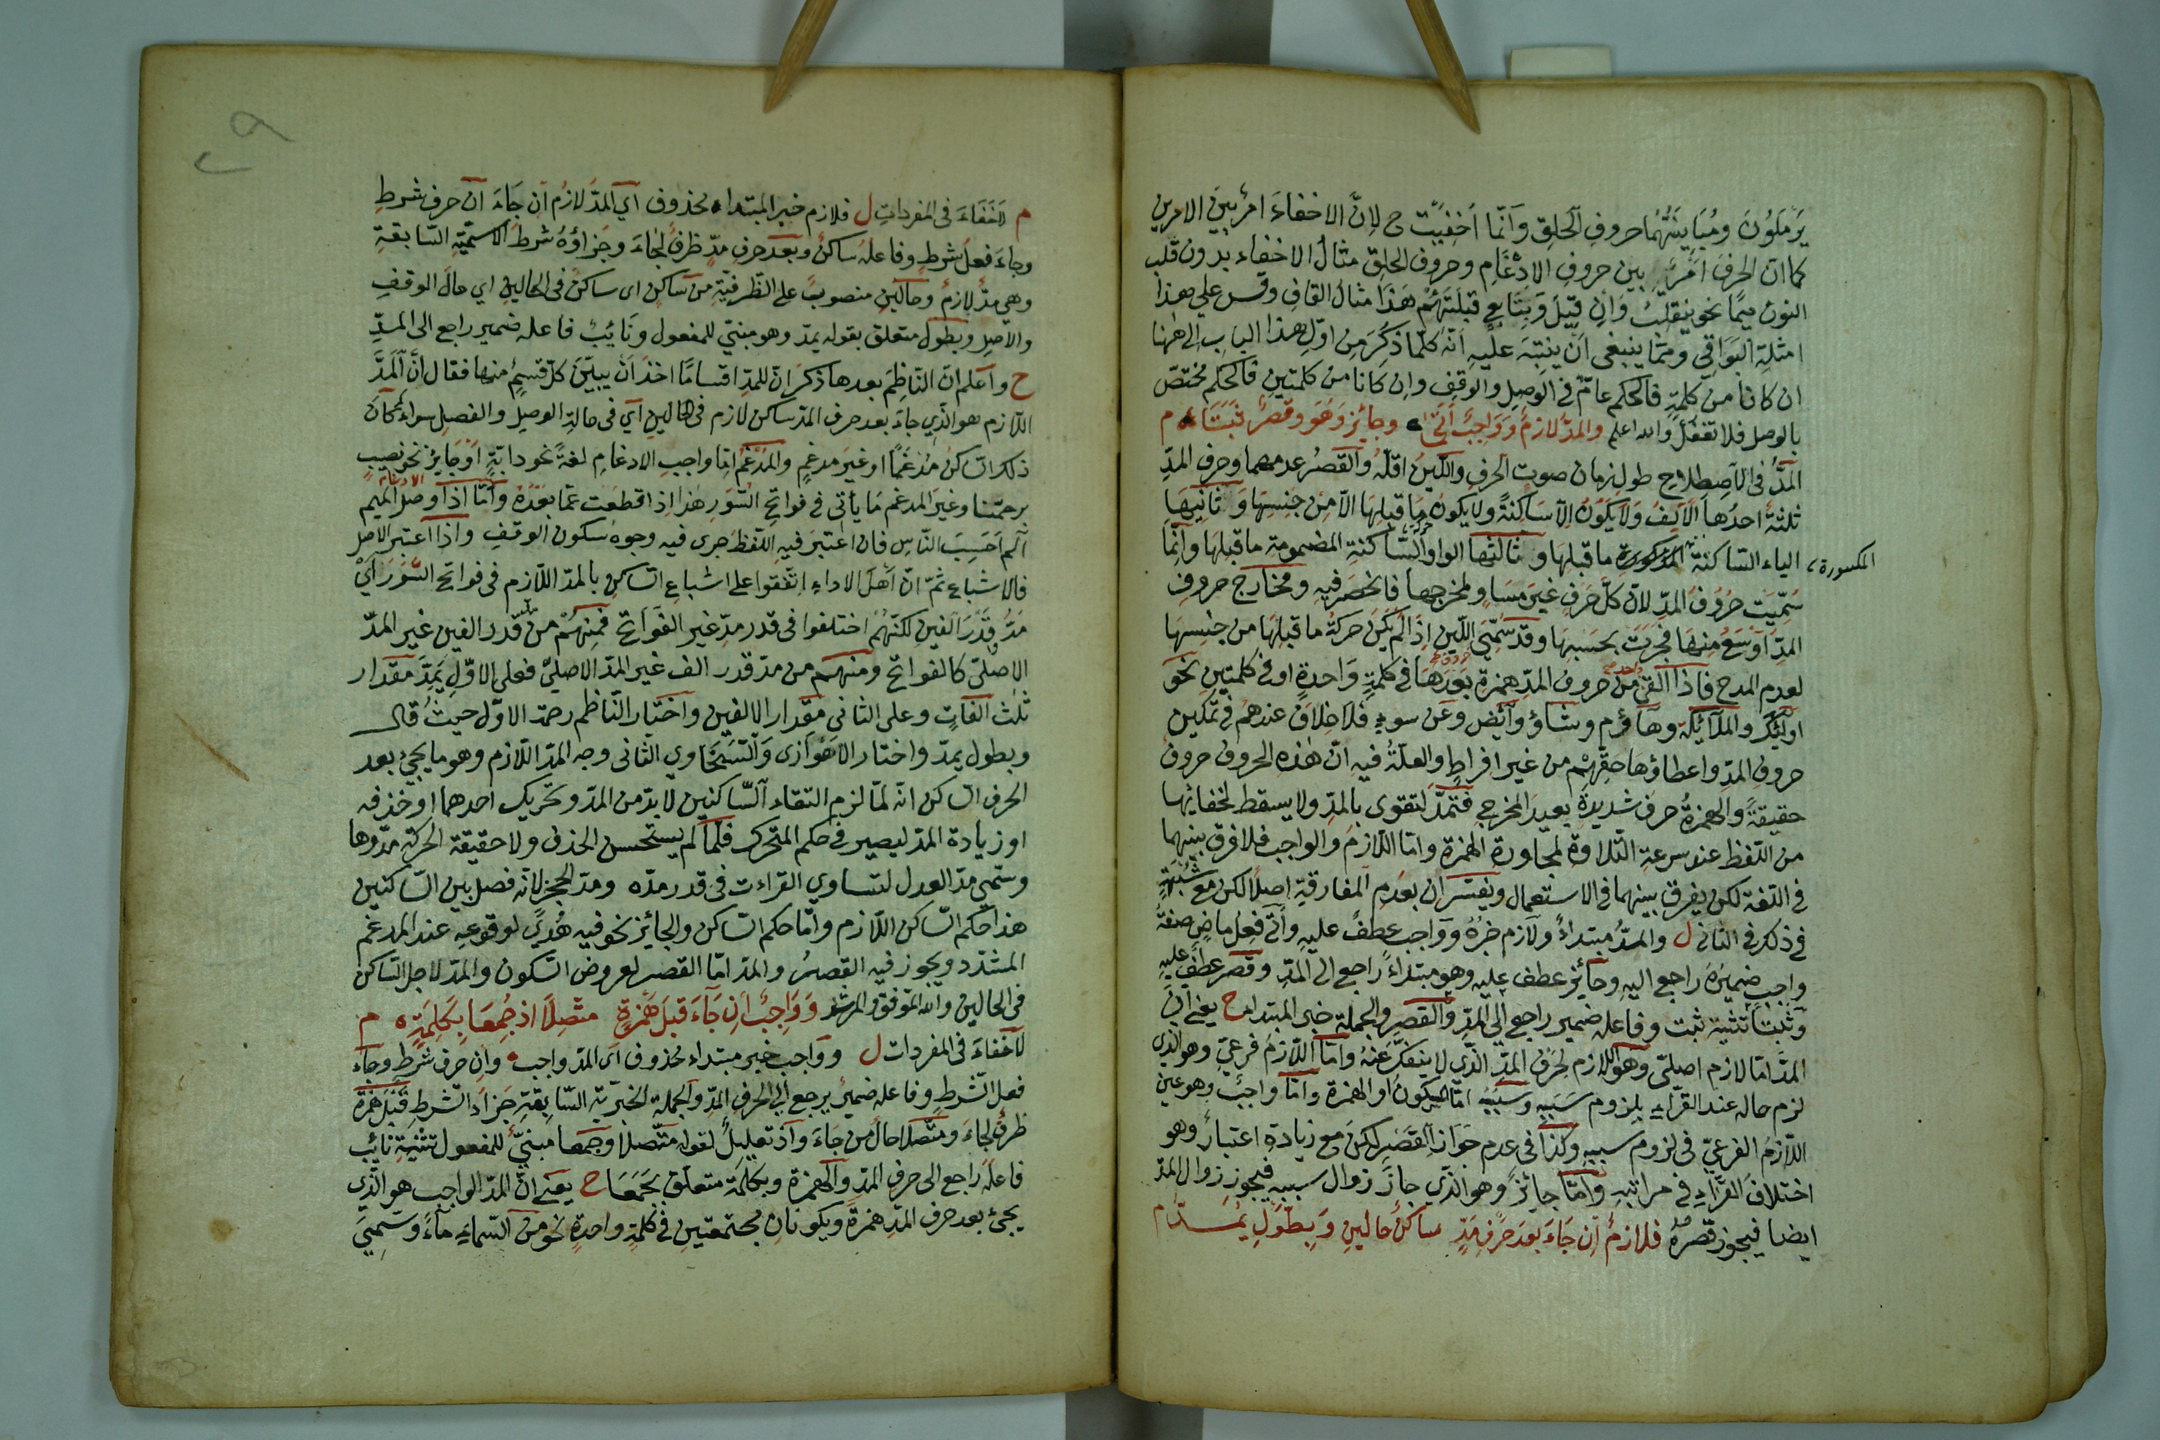 يَرْمَلُونَ ومُبَايِنَتُهُمَا حروفِ الحلقِ وَانَّما اُخفِيَت ح لِاِنَّ الاخفاءَ امرٌ بَينَ الامرينِ
كما انّ الحرفَ امرٌ بين حروفِ الادْغَامِ وحروفِ الحلقِ مثالُ الاخفاء بدون قلبِ
النونِ ميمًا نحو ينقلبُ وَاِنِ قِيلَ وَبِتَابِعٍ قبلَتَهُمْ هَذَا مثالُ القافِ وقس على هذا
امثلةِ البَوَاقِي ومّما ينبغى اَن يتنبّهَ عليهِ انّه كلّما ذكرَ مِن اوّلِ هذا البابِ الى ههنا
ان كانا من كلمةٍ فالحكم عامٌّ فى الوصل والوقفِ وان كانا من كلمتينِ فالحكم مُختصّ
بالوصلِ فلا تغفُل والله اعلم والمدُّ لازمٌ وَوَاجبٌ اَتَى وجائز وَهْوَ وقصرٌ ثَبَتَا م
المدُّ فى الاصطلاحِ طول زمان صوتِ الحرفِ واللّينُ اقلّهُ والقصرُ عدمهما وحرف المدّ
ثلثةٌ احدُها الاَلِفُ ولا يكونُ اِلّا سَاكنةً ولا يكونُ ما قبلها الّا مِن جنسِها وَثانيها
الياء السّاكنة المكسورة ما قبلها وثالثها الواو السّاكنة المضمومة ما قبلها وانّما
سُمِّيَت حروفَ المدِّ لانّ كلَّ حَرفٍ غيرَها مساوٍ لمخرجها فانحصَرَ فيه ومخارج حروفِ
المدِّ اَوْسَعُ منها فجَرَت بحَسَبِها وقد سُمِّيَ اللّين اِذَا لم يكن حركةُ ما قبلها من جنسها
لعدم المدح فاذا القىَ من حروف المدّ همزة بعدها فى كلمةٍ وَاحدةٍ او فى كلمتينِ نحوَ
اولئك والملٓائكة وهاؤم وشاؤ وَ وعَن سوءٍ فلا خلافَ عندهم فى تمكين
حروفِ المدِّ واعطاؤها حقّهم من غير افراطٍ والعلّةُ فيه انّ هٰذه الحروف حروفٌ
حقيقةً والهمزةُ حرفٌ شديدةٌ بعيدَ المخرجِ فتمدّ لتقوى بالمدّ ولا يسقط لخفائها
من اللّفظ عند سرعةِ التّلاوة لمجاورة الهمزة وامّا اللّازمُ والواجب فلا فرق بينهما
فى اللّغة لكن يفرق بينهما فى الاستعمال ويفسّران بعدمِ المفارقة اصلًا لكن مع شبهةٍ
فى ذلك فى الثانى ل والمدُّ مبتداءٌ ولازم خبرُهُ وواجب عطفٌ عليهِ واَتٰى فِعلٌ ماضٍ صفةُ
واجبٍ ضميرُهُ راجع اليه وجائز عطف عليه وهو مبتداءٌ راجع الى المدِّ وقصر عطف عليه
وثبتا تثنية ثبت وفاعله ضمير راجع الى المدِّ والقصر والجملة خبر المبتدا ح يعنى انّ
المدّ امّا لازم اصلىّ وهو اللازم لحرف المدِّ الّذى لا ينفكّ عَنهُ وامّا اللّازمُ فرعيّ وهو الّذى
لزم حاله عند القرّاءِ بلزوم سَبَبِه وسَبَبُه امّا السّكونُ او الهمزة وامّا واجبٌ وهو عين
اللّازم الفرعيّ فى لزوم سببِه وكذا فى عدم جَوَاز القصر لكن مع زيادة اعتبارٍ وهو
اختلاف القرّاءِ فى مراتبِه وامّا جايزٌ وهو الّذى جازَ زوال سببه فيجوز زوال المدّ
ايضا فيجوز قصرهُ فلازمٌ اِن جَاءَ بعدَ حَرفِ مَدٍّ ساكنُ حالينِ وَبِطُولٍ يُمَدّ م
المكسورة
م لاخَفَاءَ فى المفرداتِ ل فلازم خبر المبتداء محذوف اى المدُّ لازم اِن جَاءَ ان حرف شرطٍ
وجاءَ فعلُ شرطٍ وفاعلهُ ساكنُ وبعد حرفِ مدٍّ ظرفٌ لجاءَ وجزاؤُهُ شرطُ الاسميّةِ السّابقةِ
وهى مدٌّ لازمٌ وحالَينِ منصوبٌ على الظّرفيّةِ من ساكن اى ساكنٌ فى الحالينِ اى حالَ الوقفِ
والاصلِ وبطول متعلق بقوله يمدّ وهو مبنيّ للمفعول ونَائبُ فاعله ضمير راجع الى المدِّ
ح واَعلم انّ النّاظِمَ بعدها ذكرَ انّ للمدِّ اقسامًا اخذَ اَنْ يبيّنَ كلّ قسمٍ منها فقال انَّ المَدَّ
اللّازم هو الّذى جاءَ بعد حرف المدّ ساكن لازم فى الحالينِ اى فى حالةِ الوصل والفصل سواءٌ كانَ
ذلك السّاكنُ مُدْغَمًا او غيرَ مدغمٍ والمُدْغَمُ امّا واجب الادغامِ لغةً نحو دابّةٍ اَوْ جَايز نحو نصيب
برحمتنا وغير المدغم مَا يأتى فى فواتحِ السُّوَرِ هٰذا اِذ اقطعت عمّا بَعْدَهُ وامّا اِذَا وصلَ الميم
الٓم اَحَسِبَ النّاس فان اعتبرَ فيهِ اللّفظُ جرى فيه وجوه سكون الوقفِ واذا اعتبر الاصل
فالاشباع ثمّ انّ اَهْلَ الاداءِ اتّفقوا على اشباعِ السّاكنِ بالمدّ اللّازم فى فواتح السُّوَر اَىْ
مَدٌّ قَدْرَ الفينِ لكنّهم اختلفوا فى قدر مدِّ غير الفَوَاتِح فمنهُم من قدر الفين غير المدّ
الاصلىّ كالفواتح ومنهم من مدّ قدر الف غير المدّ الاصلىِّ فعلى الاوّلِ يَمُدّ مِقدار
ثلٰث الفاتٍ وعلى الثانى مقدار الالفين واختار النّاظم رحمه الاوّل حيثُ قال
وبطول يمدّ واختار الاهوازى والسَّخَاوى الثانى وجه المدّ اللّازم وهو ما يجئ بعد
الحرف السّاكن انّه لمّا لزم التقاء السّاكنين لا بدّ من المدّ وتحريك احدهما او حذفه
او زيادة المدّ ليصير فى حكم المتحرك فلمّا لم يستحسن الحذف ولا حقيقة الحركةِ مدّوها
وسمّى مدّ العدل لتساوى القراءت فى قدر مدّه ومدّ الحجز لانّه فصل بين السّاكنين
هذا حكم السّاكن اللّازم وامّا حكم السّاكن والجائز نحو فيه هُدًى لوقوعهِ عند المدغم
المشدّد ويجوز فيه القصرُ والمدّ امّا القصر لعروض السّكون والمدّ لاجل السّاكن
فى الحالين والله الموفق والمرشد وَوَاجِبٌ اِن جَاءَ قبلَ هَمْزةٍ متّصِلًا اذ جُمِعَا بِكَلِمَةٍ م
لاخَفَاءَ فى المفردات ل وواجب خبر مبتداء محذوف اى المدّ واجب وان حرف شرط وجاءَ
فعل الشّرطِ وفاعله ضميرٌ يرجع الى الحرفِ المدِّ والجملة الخبريّة السّابقة جزاءُ الشّرطِ قَبْلَ همزة
ظرفٌ لجاءَ ومتّصلًا حالٌ من جَاءَ واذ تعليلٌ لقوله متّصلًا وجُمِعا مبنيّ للمفعول تثنية نائب
فاعلهُ راجع الى حرف المدِّ والهمزة وبكلمة متعلق بجُمِعَا ح يعنى انّ المدّ الواجب هو الّذى
يجئ بعد حرف المدِّ همزة ويكونانِ مجتمعتينِ فى كلمةٍ واحدةٍ نحو من السَّماءِ ماءً وَسُمِّىَ